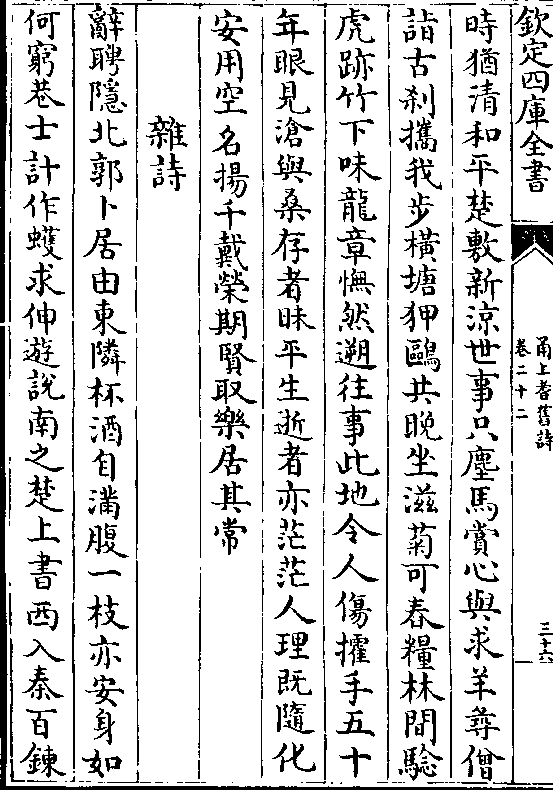 欽定四庫全書
甬上耆舊詩
卷二十二
三十六
時猶清和平楚敷新涼世事只塵馬賞心與求羊尋僧
詣古刹攜我步橫塘狎鷗共晚坐滋菊可春糧林間驗
虎跡竹下味龍章憮然遡往事此地令人傷攉手五十
年眼見滄與桑存者昧平生逝者亦茫茫人理既隨化
安用空名揚千戴榮期賢取樂居其常
雜詩
辭聘隱北郭卜居由東隣杯酒自滿腹一枝亦安身如
何窮巷士計作蠖求伸遊説南之楚上書西入秦百鍊